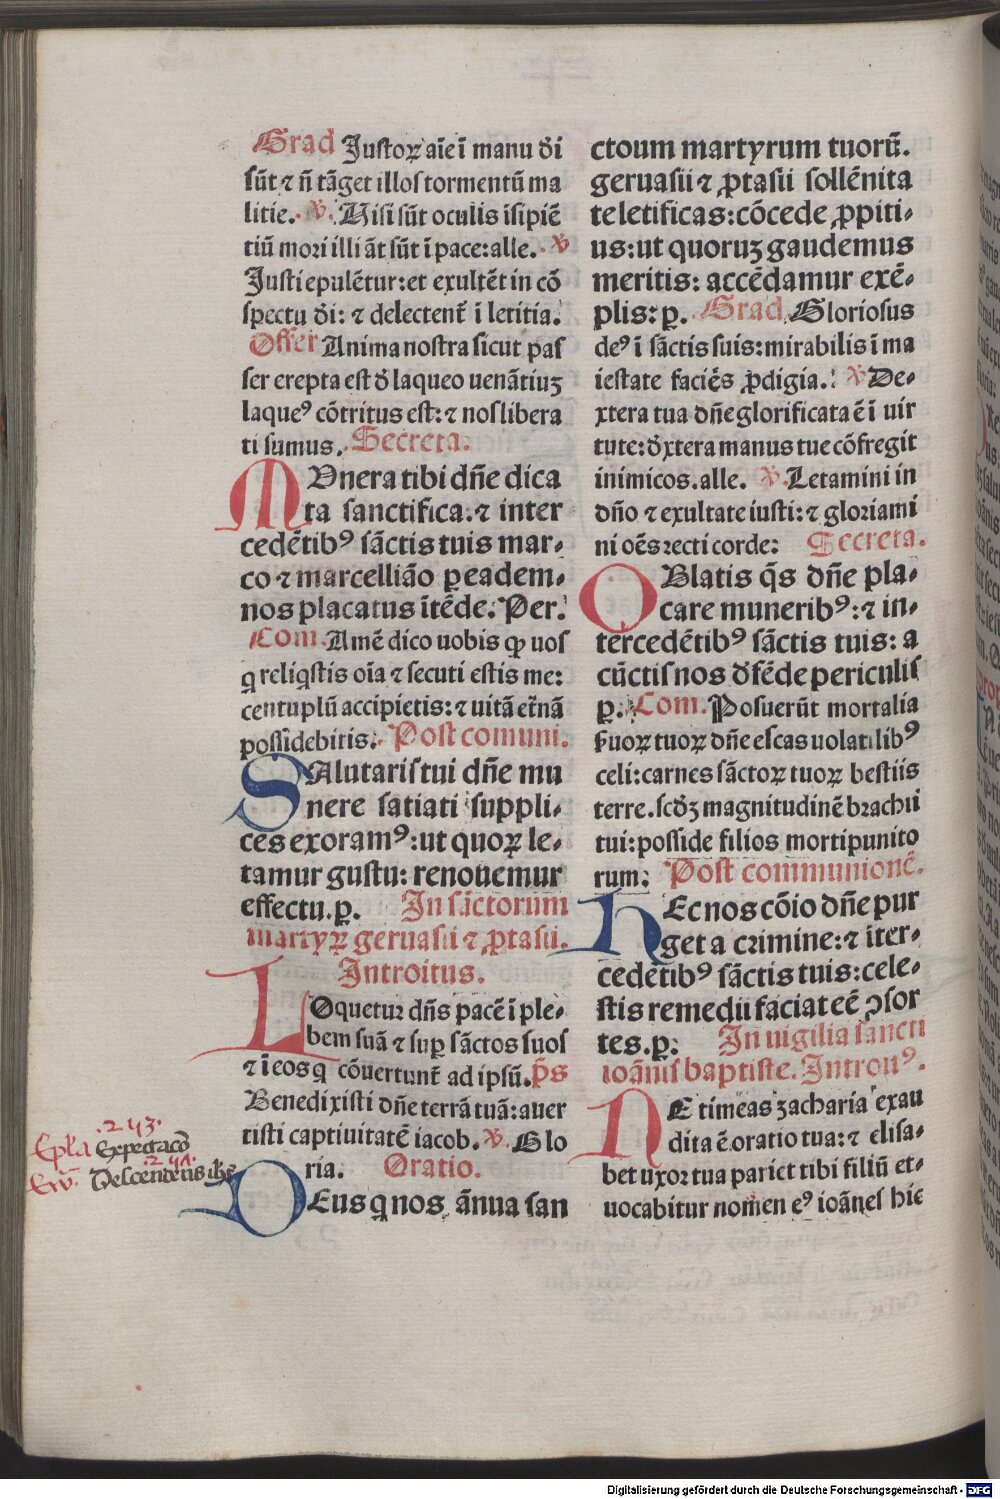 Grad Justoꝝ aīe ī manu ďi
sūt ⁊ ñ tāget illos tormentū ma
litie. ℣. Uisi sūt oculis īsipiē
tiū mori illi āt sūt ī pace: alle. ℣
Justi epulētur: et exultēt in cō
spectu ďi: ⁊ delectent̄ ī letitia.
Offer Anima nostra sicut pas
ser erepta est ď laqueo uenātiuꝫ
laqueꝰ cōtritus est: ⁊ nos libera
ti sumus. Secreta.
MUnera tibi dn̄e dica
ta sanctifica. ⁊ inter
cedētibꝰ sāctis tuis mar-
co ⁊ marcelliāo ꝑ eadem-
nos placatus ītēde. Per.
Com. Amē dico uobis ꝙ uos
q reliqstis oīa ⁊ secuti estis me:
centuplū accipietis: ⁊ uitā et̄nā
possidebitis. Post comuni.
SAlutaris tui dn̄e mu
nere satiati suppli-
ces exoramꝰ: ut quoꝝ le-
tamur gustu: renouemur
effectu. ꝑ. In sāctorum
martyꝝ geruasii ⁊ ꝓtasii.
Introitus.
LOquetur dn̄s pacē ī ple-
bem suā ⁊ suꝑ sāctos suos
⁊ ī eos q cōuertunt̄ ad ipsū. p̄s
Benedixisti dn̄e terrā tuā: auer
tisti captiuitatē iacob. ℣. Glo
ria. Oratio.
DEus q nos ānua san
.243.
Epl̄a Expectacō
.241.
Ew̄. Descendens ihs
ctoum martyrum tuorū.
geruasii ⁊ ꝓtasii sollēnita
te letificas: cōcede ꝓpiti-
us: ut quoruꝫ gaudemus
meritis: accēdamur exē-
plis: ꝑ. Grad. Gloriosus
deꝰ ī sāctis suis: mirabilis ī ma
iestate faciēs ꝓdigia. ℣ De-
xtera tua dn̄e glorificata ē ī uir
tute: ďxtera manus tue cōfregit
inimicos. alle. ℣. Letamini in
dn̄o ⁊ exultate iusti: ⁊ gloriami
ni oēs recti corde: Secreta.
OBlatis qs̄ dn̄e pla-
care muneribꝰ: ⁊ in-
tercedētibꝰ sāctis tuis: a
cūctis nos ďfēde periculis
ꝑ. Com. Posuerūt mortalia
suoꝝ tuoꝝ dn̄e escas uolatilibꝰ
celi: carnes sāctoꝝ tuoꝝ bestiis
terre. scďꝫ magnitudinē brachii
tui: posside filios mortipunito
rum: Post communionē.
HEc nos cōio dn̄e pur
get a crimine: ⁊ īter-
cedētibꝰ sāctis tuis: cele-
stis remedii faciat eē ꝯsor
tes. ꝑ: In uigilia sancti
ioānis baptiste. Introitꝰ.
NE timeas zacharia exau
dita ē oratio tua: ⁊ elisa-
bet uxor tua pariet tibi filiū et-
uocabitur nomen eꝰ ioānes hic
Digitalisierung gefördert durch die Deutsche Forschungsgemeinschaft - DFG